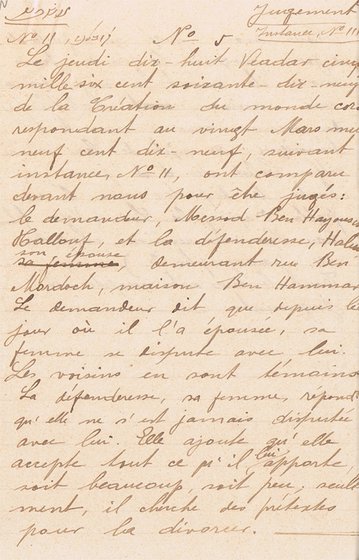 Jugement
No 11
No 5
Instance, No 11
Le jeudi dix-huit Véadar cinq
mille six cent soixante-dix-neuf
de la Création du monde cor
respondant au vingt Mars mil
neuf cent dix-neuf, suivant
instance, No 11, ont comparu
devant nous pour être jugés:
le demandeur, Messod Ben Hayou
Hallouf, et la défenderesse,
son épouse
sa femme demeurant rue Ben
Mordoch, maison Ben Hammar
Le demandeur dit que depuis le
jour où il l'a épousée, sa
femme se dispute avec lui.
Les voisins en sont témoins
La défenderesse, sa femme, répond
qu'elle ne s'est jamais disputée
avec lui. Elle ajoute qu'elle
accepte tout ce qu'il lui apporte
soit beaucoup, soit peu, seule
ment, il cherche des prétextes
pour la divorcer.